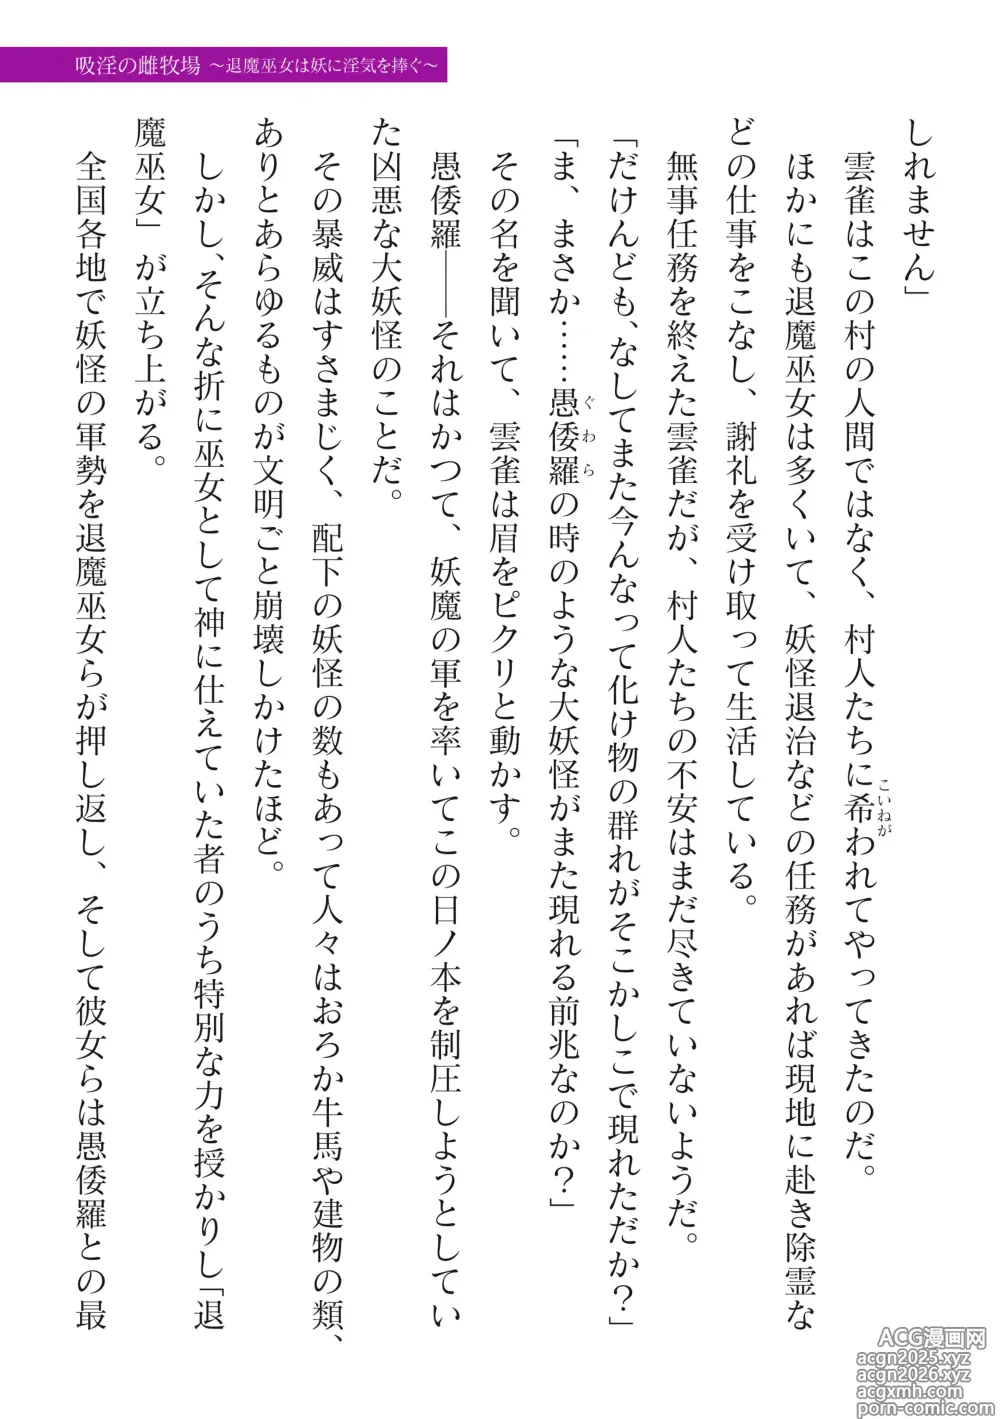 吸淫の雌牧場 ～退魔巫女は妖に淫気を捧ぐ～
しれません」
　雲雀はこの村の人間ではなく、村人たちに希われてやってきたのだ。
こいねが
　ほかにも退魔巫女は多くいて、妖怪退治などの任務があれば現地に赴き除霊な
どの仕事をこなし、謝礼を受け取って生活している。
　無事任務を終えた雲雀だが、村人たちの不安はまだ尽きていないようだ。
「だけんども、なしてまた今んなって化け物の群れがそこかしこで現れただか？」
「ま、まさか……愚倭羅の時のような大妖怪がまた現れる前兆なのか？」
ぐわら
　その名を聞いて、雲雀は眉をピクリと動かす。
　愚倭羅――それはかつて、妖魔の軍を率いてこの日ノ本を制圧しようとしてい
た凶悪な大妖怪のことだ。
　その暴威はすさまじく、配下の妖怪の数もあって人々はおろか牛馬や建物の類、
ありとあらゆるものが文明ごと崩壊しかけたほど。
　しかし、そんな折に巫女として神に仕えていた者のうち特別な力を授かりし「退
魔巫女」が立ち上がる。
　全国各地で妖怪の軍勢を退魔巫女らが押し返し、そして彼女らは愚倭羅との最
ACG漫画网
acgn2025.xyz
acgn2026.xyz
acgxmh.com
porn-comic.com